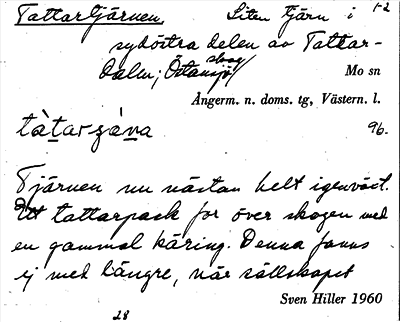 Tattartjärnen. Liten tjärn i 1-2
sydöstra delen av Tattar-
dalen; Östansjö skog
Mo sn
Ångerm. n. doms. tg, Västern. l.
96.
Tjärnen nu nästan helt igenväxt.
Ett tattarpack for över skogen med
en gammal käring. Denna fanns
ej med längre, när sällskapet
Sven Hiller 1960
28